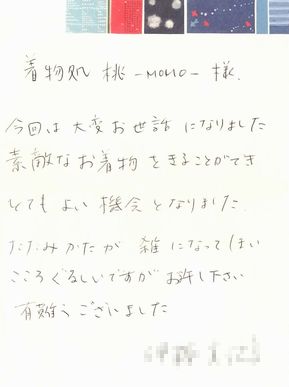 着物処 桃 -MOMO- 様.
今回は大変お世話になりました
素敵なお着物をきることができ
とてもよい機会となりました.
たたみかたが 雑になってしまい
こころぐるしいですがお許し下さい
有難うございました